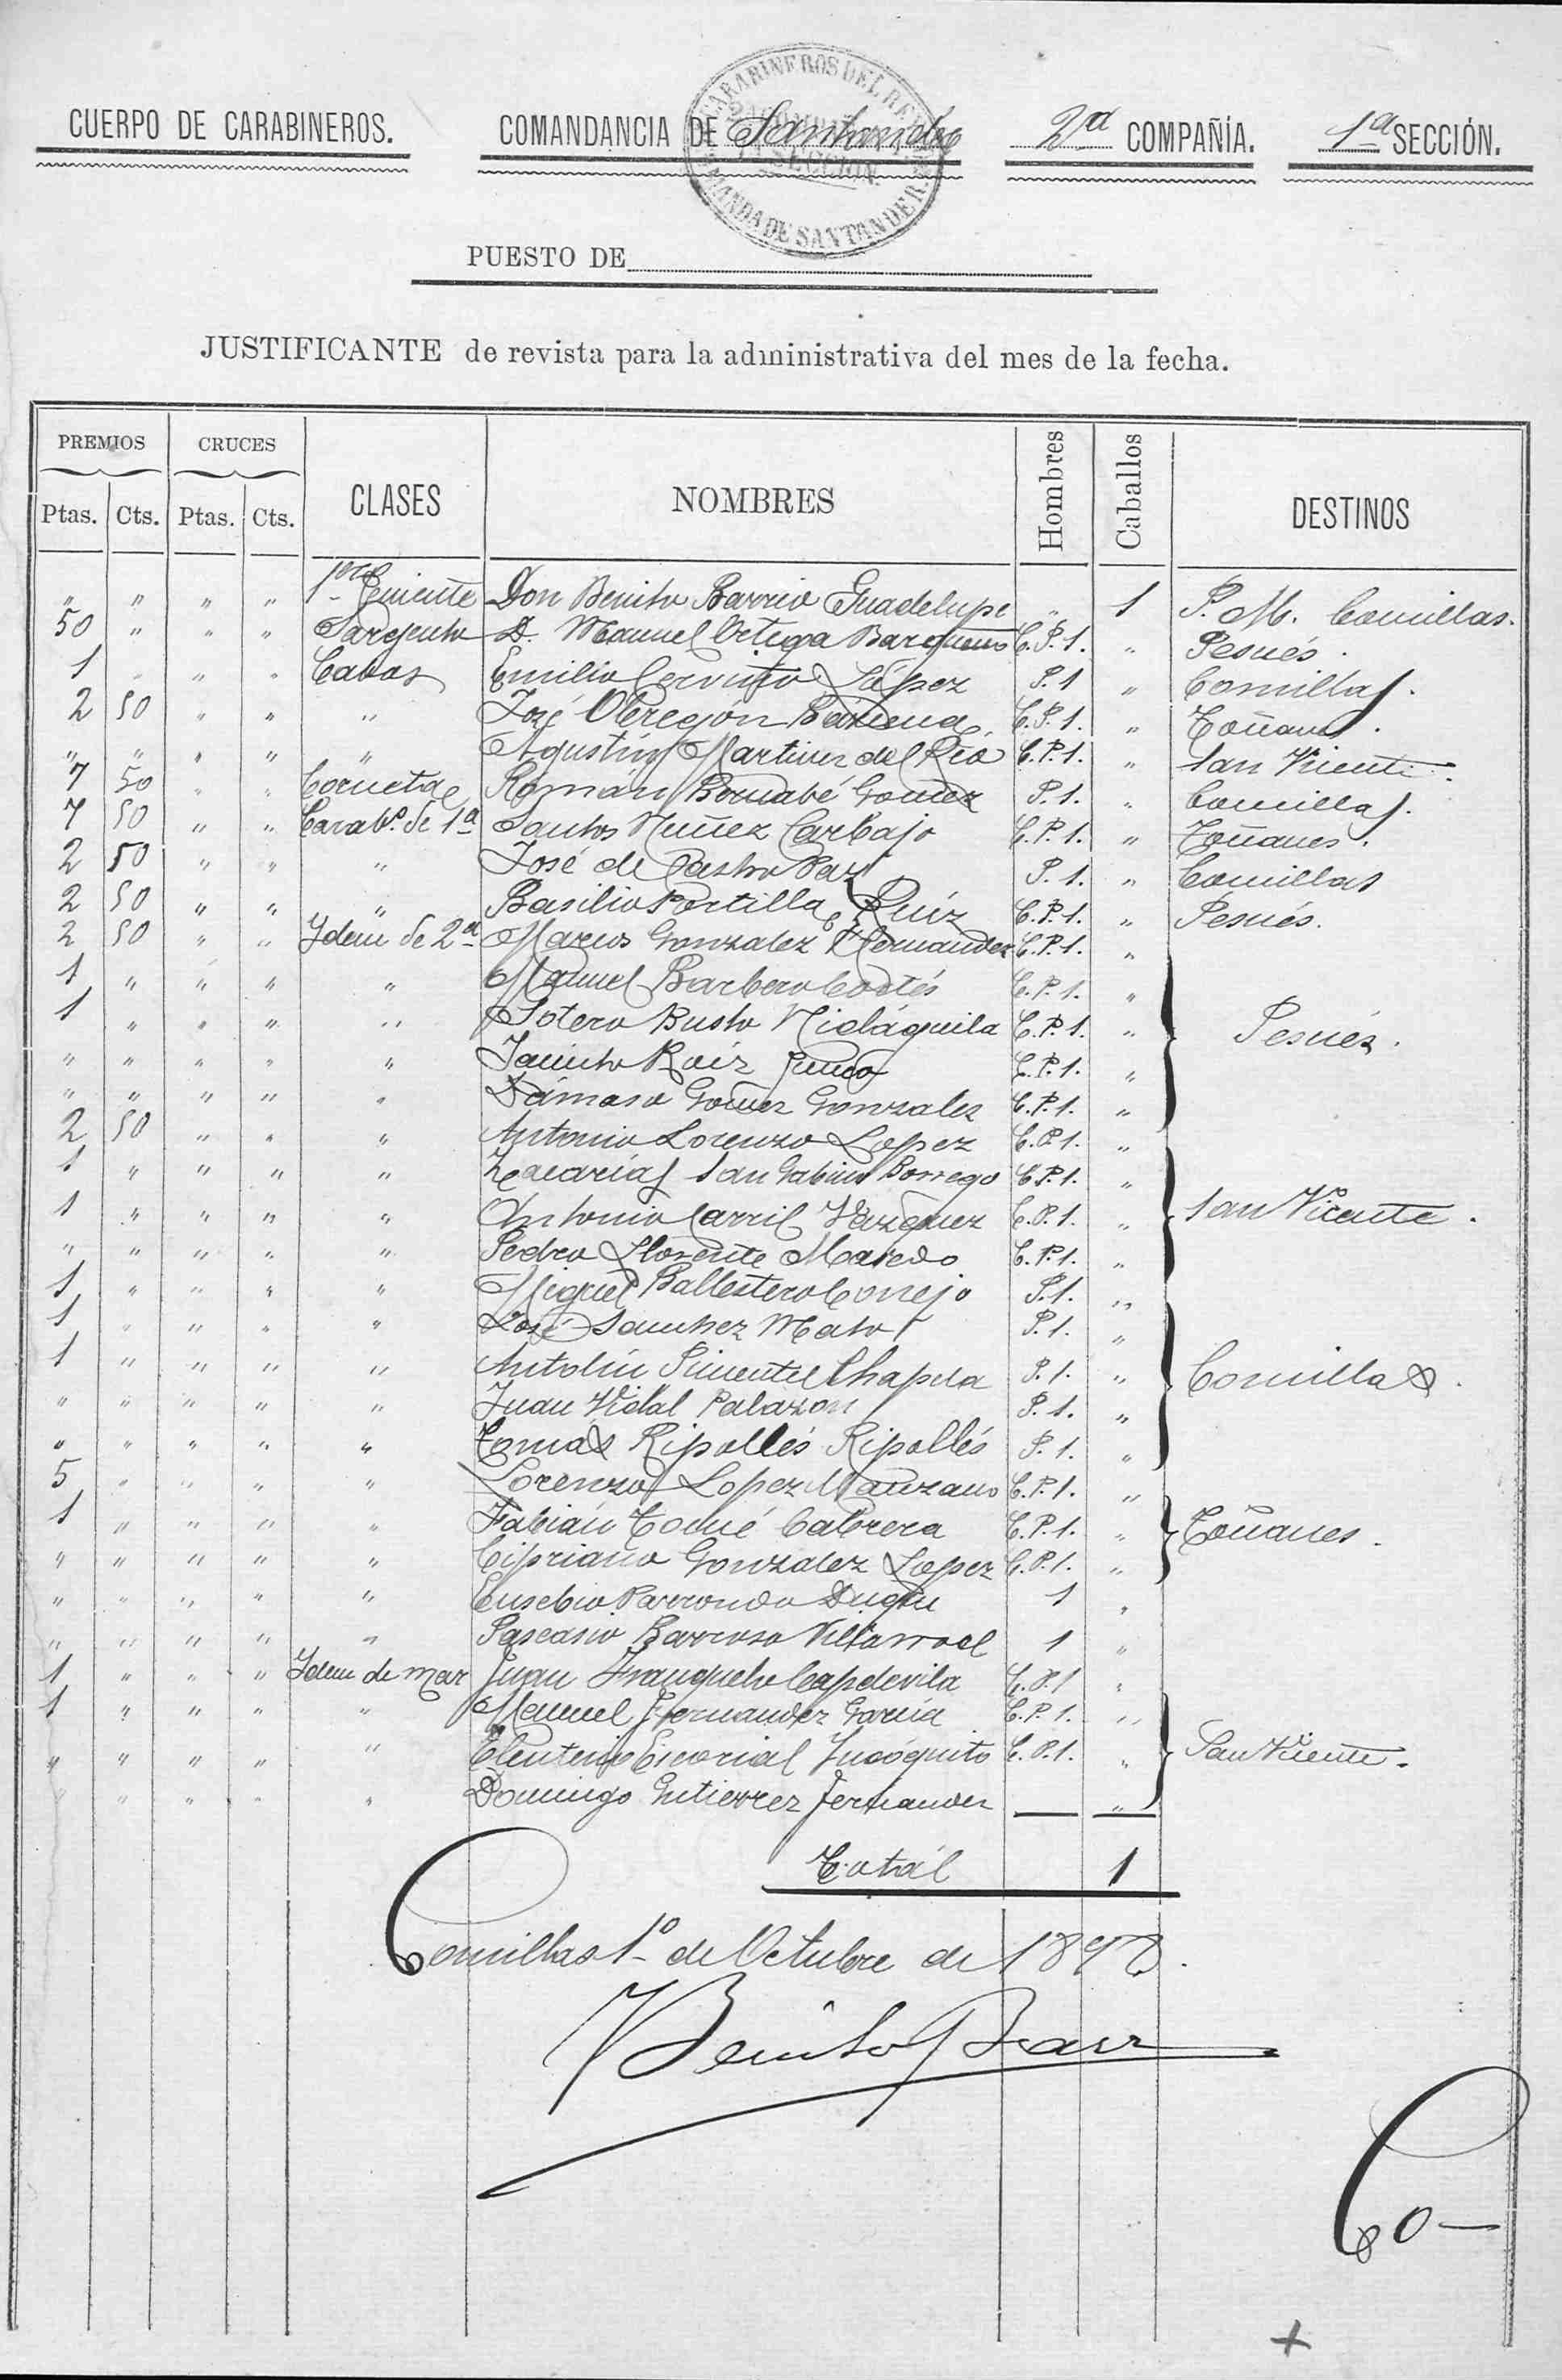 CARABINEROS DEL REINO
SECCION.
COMANDA DE SANTANDER.
CUERPO DE CARABINEROS. COMANDANCIA DE Santander 2ª COMPAÑÍA. 1ª SECCIÓN.
PUESTO DE
JUSTIFICANTE de revista para la administrativa del mes de la fecha.
PREMIOS CRUCES CLASES NOMBRES Hombres Caballos DESTINOS
Ptas. Cts. Ptas. Cts.
" " " " 1er Teniente Don Benito Barrio Guadelupe " 1 P. M. Comillas.
50 " " " Sargento D. Manuel Ortega Barquero C.P.1. " Pesués.
1 " " " Cabos Emilio Cerviño López P.1 " Comillas.
2 50 " " " José Obregón Bárcena C.P.1. " Toñanes.
" " " " " Agustín Martinez del Río C.P.1. " San Vicente.
7 50 " " Corneta Román Bernabé Gomez P.1. " Comillas.
7 50 " " Carabº. de 1ª Santos Nuñez Carbajo C.P.1. " Toñanes.
2 50 " " " José de Castro Paz P.1. " Comillas
2 50 " " " Basilio Portilla Ruíz C.P.1. " Pesués.
2 50 " " Idem de 2ª Marcos Gonzalez Hernandez C.P.1. "
1 " " " " Manuel Barbero Cortés C.P.1. "
1 " " " " Sotero Busto Nidáguila C.P.1. " Pesués.
" " " " " Jacinto Roiz Junco C.P.1. "
" " " " " Dámaso Gomez Gonzalez C.P.1. "
2 50 " " " Antonio Lorenzo Lopez C.P.1. "
1 " " " " Zacarías San Gabino Borrego C.P.1. "
1 " " " " Antonio Carril Vazquez C.P.1. " San Vicente.
" " " " " Pedro Llorente C.P.1. "
1 " " " " Miguel Ballestero Conejo P.1. "
1 " " " " José Sanchez Mato P.1. "
1 " " " " Antolín Pimentel Chapela P.1. " Comillas.
" " " " " Juan Vidal Palazon P.1. "
" " " " " Tomás Ripollés Ripollés P.1. "
5 " " " " Lorenzo Lopez Manzano C.P.1. "
1 " " " " Fabián Tomé Cabrera C.P.1. " Toñanes.
" " " " " Cipriano Gonzalez Lopez C.P.1. "
" " " " " Eusebio Parrondo Duque 1 "
" " " " " Pascasio Barroso Villarroel 1 "
1 " " " Idem de mar Juan Franquelo Capdevila C.P.1 "
1 " " " " Manuel Fernandez García C.P.1. "
" " " " " Eleuterio Escorial Incógnito C.P.1. " San Vicente.
" " " " " Domingo Gutierrez Fernandez — "
Totál 1
Comillas 1º de Octubre de 1898.
Benito Barr
Co—
+